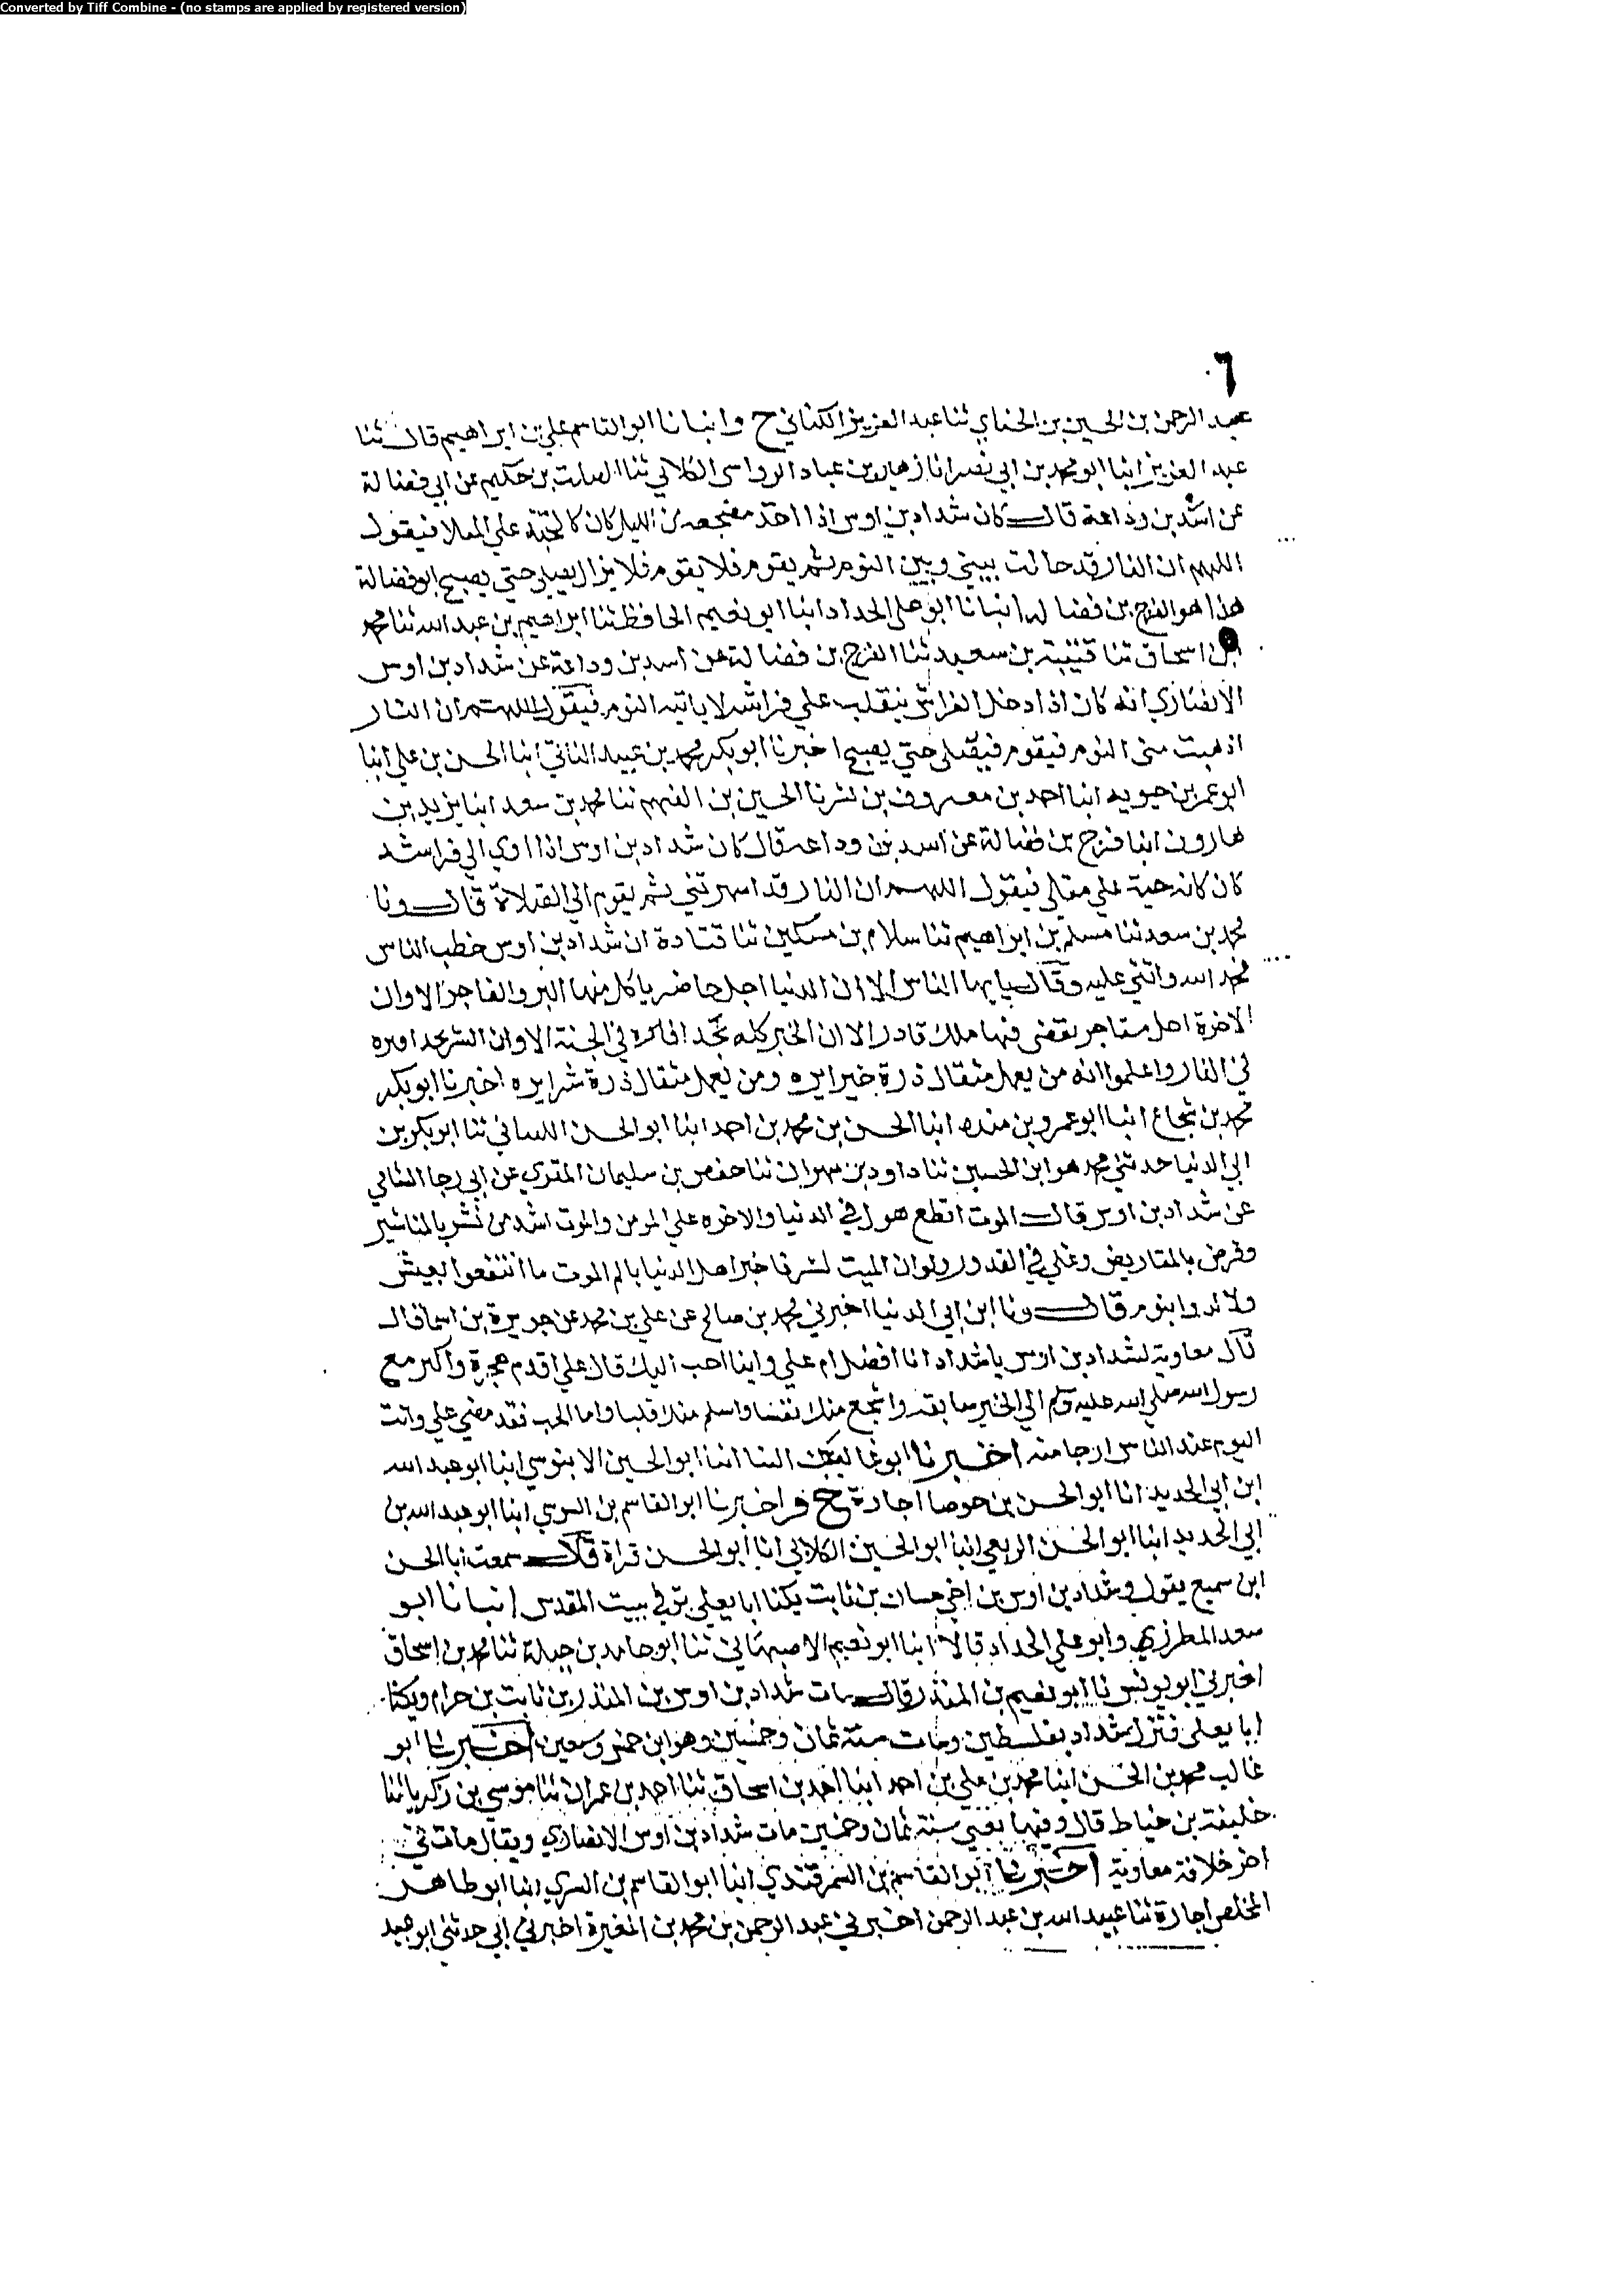 Converted by Tiff Combine - (no stamps are applied by registered version)
٦
عبد الرحمن بن الحسين بن الحناي ثنا عبد العزيز الكناني ح وانبانا ابو القاسم علي بن ابراهيم قال ثنا
عبد العزيز انبا ابو محمد بن ابي نصر انا زهير بن عباد الرواسى الكلابي ثنا الصلت بن حكيم عن ابي فضالة
عن اسد بن وداعة قال كان شداد بن اوس اذا اخذ مضجعه من الليل كان كالحبة علي المقلا فيقول
اللهم ان النار قد حالت بيني وبين النوم ثم يقوم فلا يقوم فلا يزال يصلي حتي يصبح ابو فضالة
هذا هو الفرج بن فضاله انبانا ابو علي الحداد انبا ابو نعيم الحافظ ثنا ابراهيم بن عبد الله ثنا محمد
بن اسحاق ثنا قتيبة بن سعيد ثنا الفرج بن فضالة عن اسد بن وداعة عن شداد بن اوس
الانصاري انه كان اذا دخل الفراش يتقلب علي فراشه لا ياتيه النوم فيقول اللهم ان النار
اذهبت منى النوم فيقوم فيصلى حتي يصبح اخبرنا ابو بكر محمد بن عبد الباقي انبا الحسن بن علي انبا
ابو عمر بن حيويه انبا احمد بن معروف بن بشر نا الحسين بن الفهم ثنا محمد بن سعد انبا يزيد بن
هارون انبا فرج بن فضالة عن اسد بن وداعه قال كان شداد بن اوس اذا اوي الي فراشه
كان كانه حبة علي مقلي فيقول اللهم ان النار قد اسهرتني ثم يقوم الي الصلاة قال ونا
محمد بن سعد ثنا مسلم بن ابراهيم ثنا سلام بن مسكين ثنا قتادة ان شداد بن اوس خطب الناس
فحمد الله واثني عليه وقال يايها الناس الا ان الدنيا اجل حاضر ياكل منها البر والفاجر الا وان
الاخرة اجل مستاخر يقضى فيها ملك قادر الا ان الخير كله بحذافيره في الجنة الا وان الشر بحذافيره
في النار واعلموا انه من يعمل مثقال ذرة خيرا يره ومن يعمل مثقال ذرة شرا يره اخبرنا ابو بكر
محمد بن شجاع انبا ابو عمرو بن منده انبا الحسن بن محمد بن احمد انبا ابو الحسن اللبناني ثنا ابو بكر بن
ابي الدنيا حدثني محمد هو ابن الحسين ثنا داود بن مهران ثنا حفص بن سليمان المقري عن ابي رجا الشامي
عن شداد بن اوس قال الموت افظع هول في الدنيا والاخره علي المومن والموت اشد من نشر بالمناشير
وقرض بالمقاريض وغلي في القدور ولو ان الميت نشر فاخبر اهل الدنيا بالم الموت ما انتفعوا بعيش
ولا لذوا بنوم قال ونا ابن ابي الدنيا اخبرني محمد بن صالح عن علي بن محمد عن جويرة بن اسما قال
قال معاوية لشداد بن اوس يا شداد انا افضل ام علي واينا احب اليك قال علي اقدم هجرة واكبر مع
رسول الله صلي الله عليه وسلم الي الخير سابقه واشجع منك نفسا واسلم منك قلبا واما الحب فقد مضي علي وانت
اليوم عند الناس ارجا منه اخبرنا ابو غالب بن البنا انبا ابو الحسين الابنوسي انبا ابو عبد الله
ابن ابي الحديد انا ابو الحسن بن حوصا اجازة ح واخبرنا ابو القاسم بن السوسي انبا ابو عبد الله بن
ابي الحديد انبا ابو الحسن الربعي انبا ابو الحسين الكلابي انا ابو الحسن قراة قال سمعت ابا الحسن
ابن سميع يقول وشداد بن اوس بن اخي حسان بن ثابت يكنا ابا يعلي توفي ببيت المقدس انبانا ابو
سعد المطرزي وابو علي الحداد قالا انبا ابو نعيم الاصبهاني ثنا ابو حامد بن جبلة ثنا محمد بن اسحاق
اخبرني ابو يونس نا ابو نعيم بن المنذر قال مات شداد بن اوس بن المنذر بن ثابت بن حرام ويكنا
ابا يعلي فنزل شداد بفلسطين ومات سنة ثمان وخمسين وهو ابن خمس وسبعين اخبرنا ابو
غالب محمد بن الحسن انبا محمد بن علي بن احمد انبا احمد بن اسحاق ثنا احمد بن عمران ثنا موسي بن زكريا ثنا
خليفة بن خياط قال وفيها يعني سنة ثمان وخمسين مات شداد بن اوس الانصاري ويقال مات في
اخر خلافة معاوية اخبرنا ابو القاسم بن السمرقندي انبا ابو القاسم بن البسري انبا ابو طاهر
المخلص اجازة ثنا عبيد الله بن عبد الرحمن اخبرني عبد الرحمن بن محمد بن المغيرة اخبرني ابي حدثني ابو عبيد